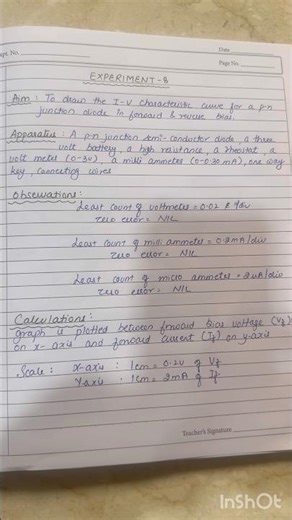 Expt. No.
Date
Page No.
EXPERIMENT-8
Aim : To draw the I-V characteristic curve for a p-n
junction diode in forward & reverse bias.
Apparatus : A p-n junction semi-conductor diode, a three
volt battery, a high resistance, a rheostat, a
volt meter (0-3v), a milli ammeter (0-030 mA), one way
key, connecting wires
Observations :
Least count of voltmeter = 0.02 V/div
zero error = NIL
Least count of milli ammeter = 0.2mA/div
zero error = NIL
Least count of micro ammeter = 2uA/div
zero error = NIL
Calculations :
graph is plotted between forward bias voltage (Vf)
on x-axis and forward current (If) on y-axis
Scale : x-axis : 1cm = 0.2V of Vf
Y-axis : 1cm = 2mA of If
Teacher's Signature
InShOt